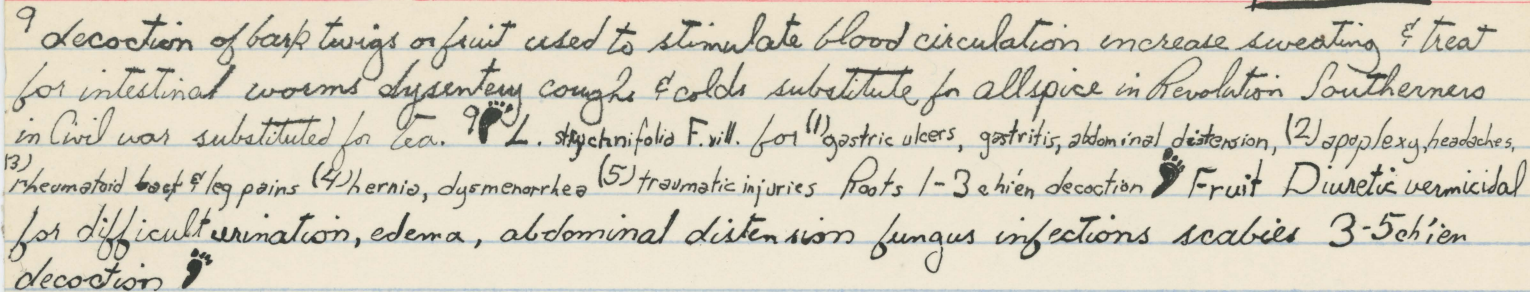 9 decoction of bark twigs or fruit used to stimulate blood circulation increase sweating & treat
for intestinal worms dysentery coughs & colds substitute for allspice in Revolution Southerners
in Civil war substituted for tea. 9 L. strychnifolia F. vill. for (1) gastric ulcers, gastritis, abdominal distension, (2) apoplexy, headaches,
(3) rheumatoid back & leg pains (4) hernia, dysmenorrhea (5) traumatic injuries Roots 1-3 ch'ien decoction Fruit Diuretic vermicidal
for difficult urination, edema, abdominal distension fungus infections scabies 3-5 ch'ien
decoction